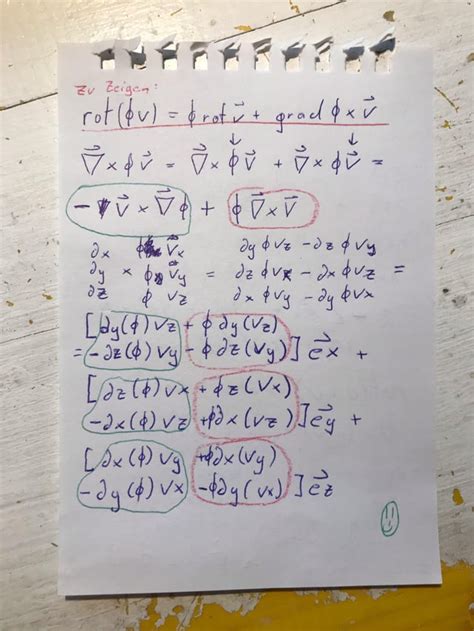 Zu Zeigen:
rot(ϕv) = ϕ rot v⃗ + grad ϕ × v⃗
∇⃗ × ϕ v⃗ = ∇⃗ × ϕ↓ v⃗ + ∇⃗ × ϕ v⃗↓ =
- v⃗ × ∇⃗ ϕ + ϕ ∇⃗ × v⃗
∂x ϕ v⃗x ∂y ϕ vz - ∂z ϕ vy
∂y × ϕ v⃗y = ∂z ϕ vx - ∂x ϕ vz =
∂z ϕ vz ∂x ϕ vy - ∂y ϕ vx
[∂y(ϕ) vz + ϕ ∂y(vz)
= -∂z(ϕ) vy - ϕ ∂z(vy)] e⃗x +
[∂z(ϕ) vx + ϕ z(vx)
-∂x(ϕ) vz + ϕ∂x(vz)] e⃗y +
[∂x(ϕ) vy + ϕ∂x(vy)
-∂y(ϕ) vx - ϕ∂y(vx)] e⃗z